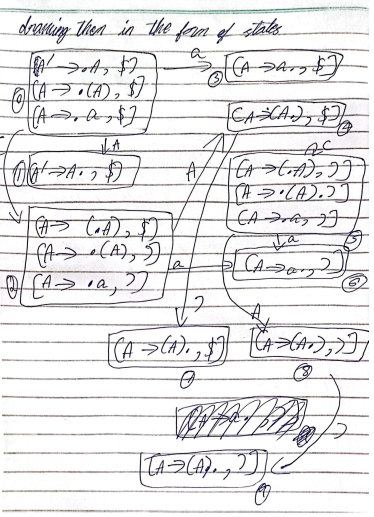 drawing then in the form of states
[A' → .A, $]
[A → .(A), $]
[A → .a, $]
a
[A → a., $]
③
⓪
[A → (A.), $]
④
A
① [A' → A., $]
A
[A → (.A), )]
[A → .(A), )]
[A → .a, )]
⑤
[A → (.A), $]
[A → .(A), )]
[A → .a, )]
②
a
a
[A → a., )]
⑥
)
A
[A → (A)., $]
[A → (A.), )]
⑧
)
[A → (A)., )]
⑨